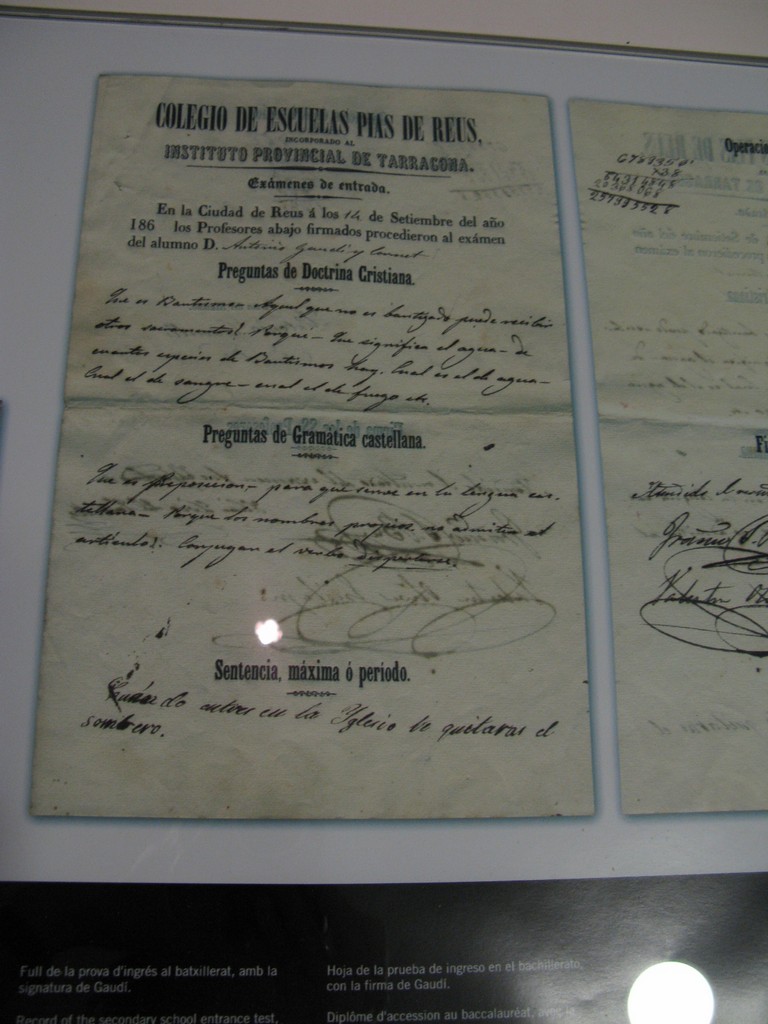 COLEGIO DE ESCUELAS PIAS DE REUS,
INCORPORADO AL
INSTITUTO PROVINCIAL DE TARRAGONA.
Exámenes de entrada.
En la Ciudad de Reus á los 14 de Setiembre del año
186 los Profesores abajo firmados procedieron al exámen
del alumno D. Antonio Gaudi y Cornet
Preguntas de Doctrina Cristiana.
Que es Bautismo= Aquel que no es bautizado puede recibir
otros sacramentos? Porqué – Que significa el agua – de
cuantas especies de Bautismos hay. Cual es el de agua –
Cual el de sangre – cual el de fuego etc.
Preguntas de Gramática castellana.
Que es preposicion – para que sirve en la lengua cas-
tellana – Porque los nombres propios no admiten el
artículo?. Conjugar el verbo
Sentencia, máxima ó período.
Cuando entres en la Iglesia te quitaras el
sombrero.
Operacio
738
25733328
Fi
Full de la prova d'ingrés al batxillerat, amb la
signatura de Gaudí.
Record of the secondary school entrance test,
Hoja de la prueba de ingreso en el bachillerato,
con la firma de Gaudí.
Diplôme d'accession au baccalauréat, avec la